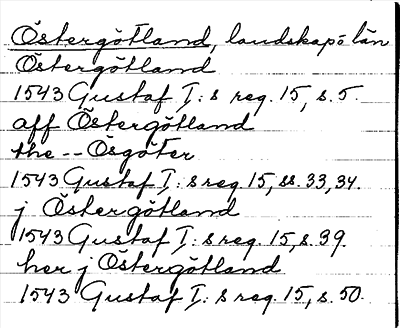 Östergötland, landskap o län
Östergötland
1543 Gustaf I:s reg. 15, s. 5.
aff Östergötland
the -- Ösgöter
1543 Gustaf I:s reg. 15, ss. 33, 34.
j Östergötland
1543 Gustaf I:s reg. 15, s. 39.
her j Östergötland
1543 Gustaf I:s reg. 15, s. 50.